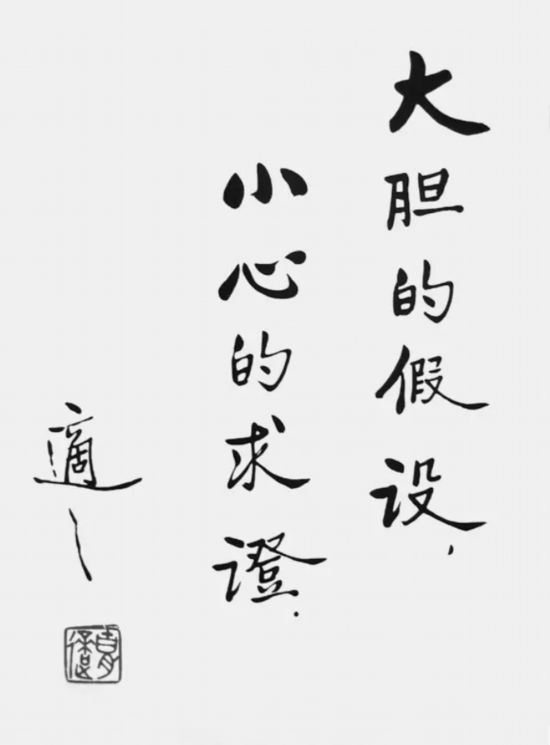 大胆的假设,
小心的求證.
適之